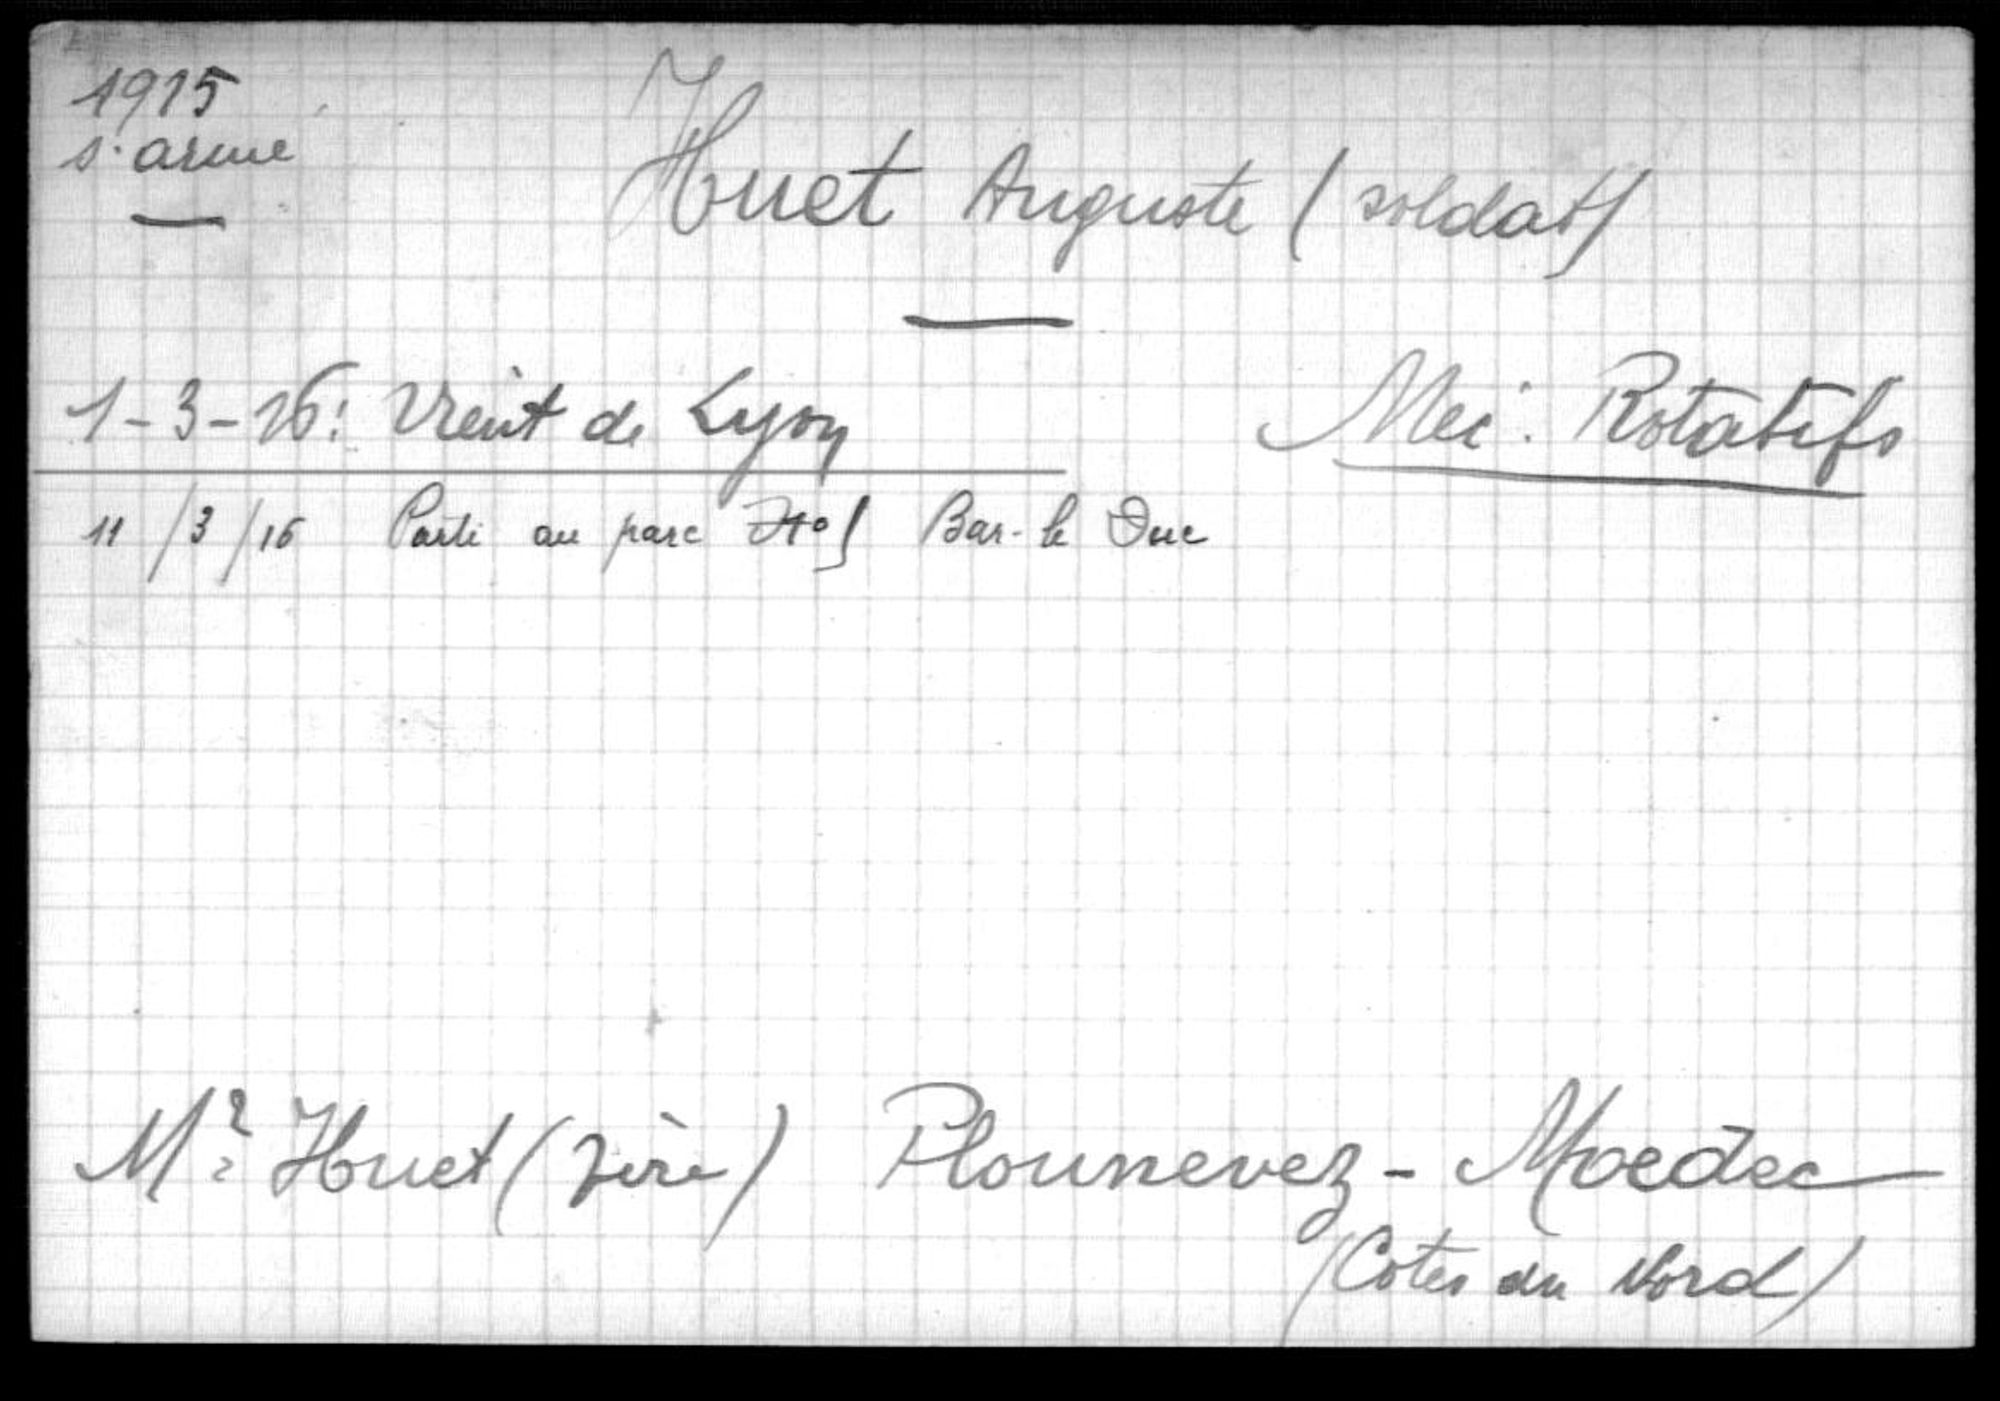 1915
s. arme
Huet Auguste (soldat)
1-3-16: Vient de Lyon Mec. Rotatifs
11/3/16 Parti au parc Bar-le Duc
Mr Huet (père) Plounevez-Moedec
(Cotes du Nord)